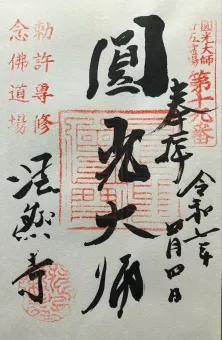 圓光大師
二十五霊場
第十九番
奉拝
令和六年
四月四日
圓光大師
勅許専修
念佛道場
法然寺